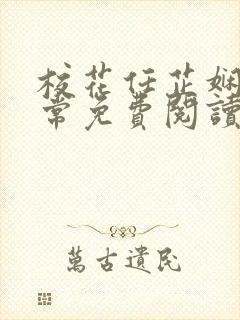 校花任芷娴
常免費閱讀
萬古遺民